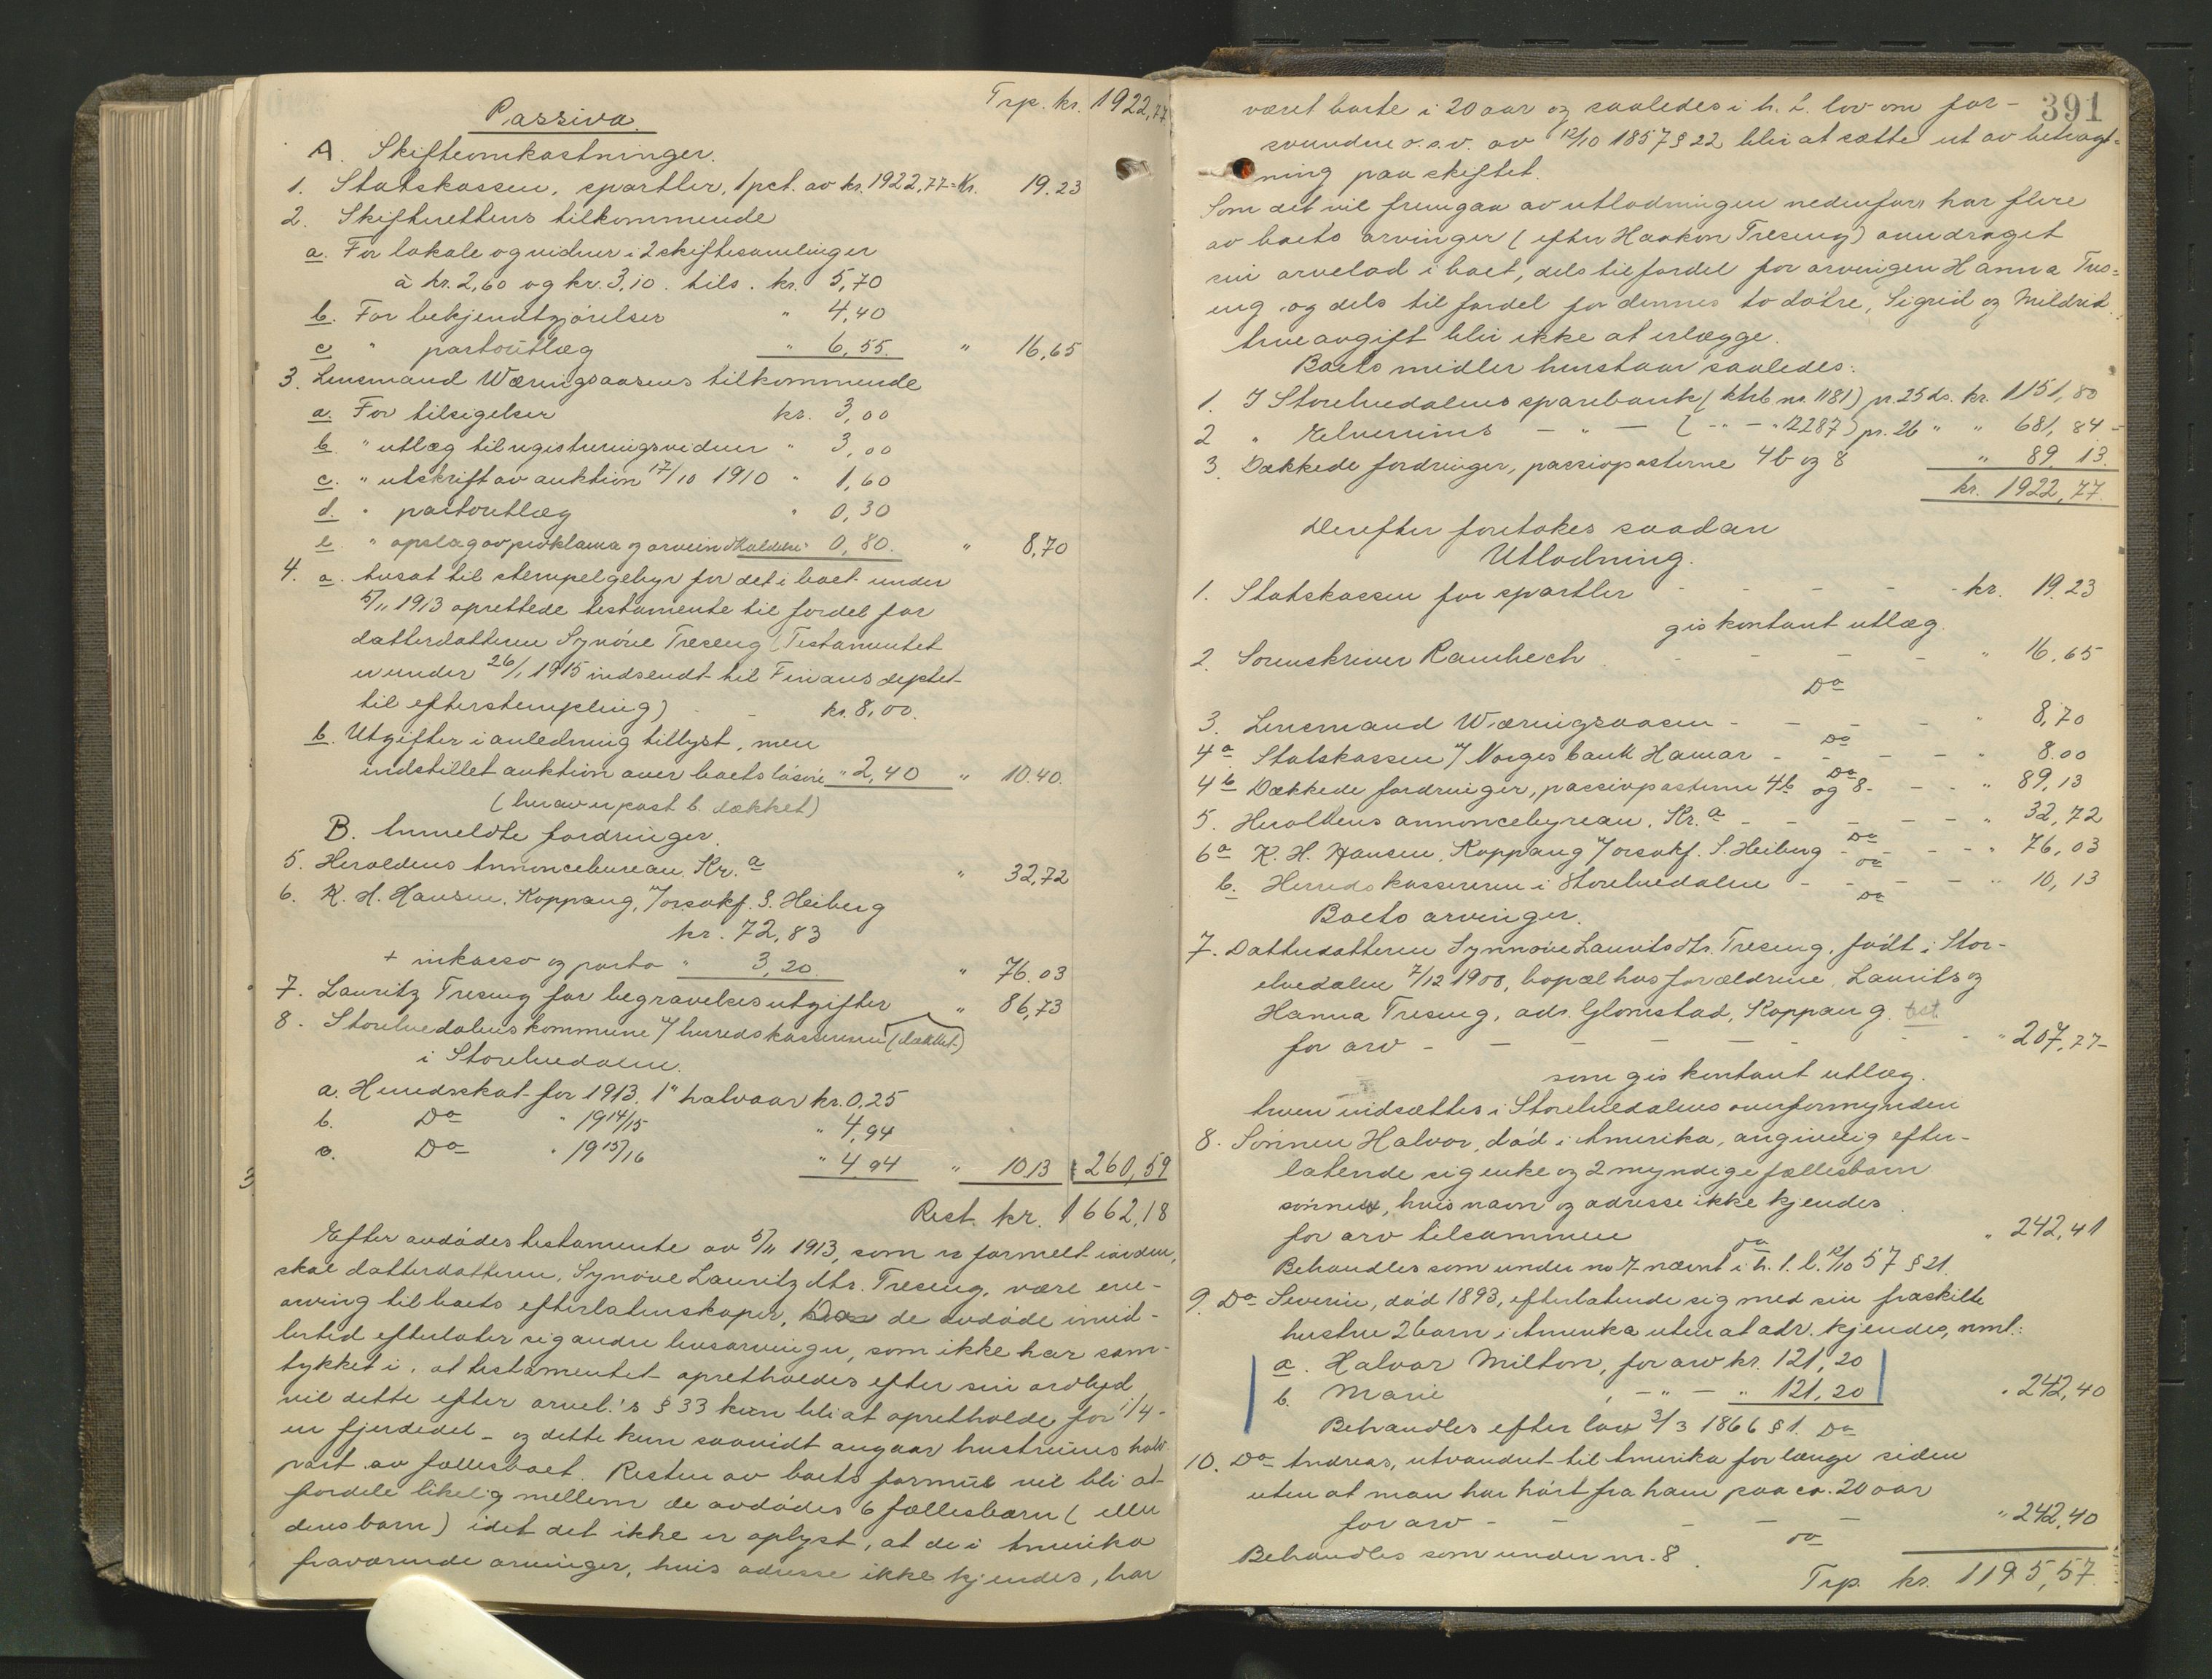 Trp. kr. 1922,77
Passiva.
A. Skifteomkostninger.
1. Statskassen, sportler, 1 pct. av kr. 1922,77 = Kr. 19.23
2. Skifterettens tilkommende
a. For lokale og vidner i 2 skiftesamlinger
à kr. 2,60 og kr. 3,10. tils. kr. 5,70
b. For bekjendtgjörelser " 4,40
c " portoutlæg " 6,55. " 16,65
3. Lensmand Wæringsaasens tilkommende
a. For tilsigelser kr. 3,00
b. " utlæg til registreringsvidner " 3,00
c. " utskrift av auktion 17/10 1910 " 1,60
d. " portoutlæg " 0,30
e. " opslag av proklama og arveindkaldelse " 0,80. " 8,70
4. a. Avsat til stempelgebyr for det i boet under
5/11 1913 oprettede testamente til fordel for
datterdatteren Synöve Treseng (Testamentet
er under 26/1 1915 indsendt til Finansdeptet
til efterstempling) - - kr. 8,00.
b. Utgifter i anledning tillyst, men
indstillet auktion over boets lösöre " 2,40 " 10.40.
(herav er post b. dækket)
B. Anmeldte fordringer.
5. Heroldens Annoncebureau, Kr.a " 32,72
6. K. H. Hansen, Koppang, v/ orsakf. S. Heiberg
kr. 72,83
+ inkasso og porto " 3,20. " 76.03
7. Lauritz Treseng for begravelsesutgifter " 86,73
8. Storelvedalens kommune v/ herredskassereren (dækket)
i Storelvedalen.
a. Herredsskat for 1913. 1" halvaar kr. 0,25
b. Do " 1914/15 " 4,94
c. Do " 1915/16 " 4,94 " 10,13 260,59
Rest. kr. 1662,18
Efter avdödes testamente av 5/11 1913, som er formelt iorden,
skal datterdatteren, Synöve Lauritzdtr. Treseng, være ene-
arving til boets efterlatenskaper, Da de avdöde imid-
lertid efterlater sig andre livsarvinger, som ikke har sam-
tykket i, at testamentet opretholdes efter sin ordlyd
vil dette efter arvel.'s § 33 kun bli at opretholde for 1/4 -
en fjerdedel - og dette kun saavidt angaar hustruens halv
part av fællesboet. Resten av boets formue vil bli at
fordele likelig mellem de avdödes 6 fællesbarn (eller
deres barn) idet det ikke er oplyst, at de i Amerika
fraværende arvinger, hvis adresse ikke kjendes, har
391
været borte i 20 aar og saaledes i h. t. lov om for-
svundne o.s.v. av 12/10 1857 § 22 blir at sætte ut av betragt-
ning paa skiftet.
Som det vil fremgaa av utlodningen nedenfor, har flere
av boets arvinger (efter Haakon Treseng) avndraget
sin arvelod i boet, dels til fordel for arvingen Hanna Tres-
eng og dels til fordel for dennes to dötre, Sigrid og Mildrid.
Arveavgift blir ikke at erlægge.
Boets midler henstaar saaledes:
1. I Storelvedalens sparebank (ktrb no. 1181) pr. 25 ds. kr. 1151,80
2 " Elverums - " - (" - " 12287) pr. 26 " " 681,84 -
3. Dækkede fordringer, passivposterne 4b og 8 " 89.13.
kr. 1922,77.
Derefter foretokes saadan
Utlodning.
1. Statskassen for sportler - - - - - kr. 19.23
gis kontant utlæg.
2. Sorenskriver Rambech. - - - - " 16.65
Do
3. Lensmand Wæringsaasen - - - - " 8,70
Do
4a Statskassen v/ Norges bank Hamar - - - - " 8.00
Do
4b Dækkede fordringer, passivposterne 4b og 8 - - " 89,13
5. Heroldens annoncebyreau, Kr.a - - - - - " 32,72
Do
6a K. H. Hansen, Koppang v/ orsakf. S. Heiberg - - - " 76,03
Do
b. Herredskassereren i Storelvedalen - - - - " 10,13
Do
Boets arvinger.
7. Datterdatteren Synnöve Lauritsdtr. Treseng, födt i Stor-
elvedalen 7/12 1900, bopæl hos forældrene, Laurits og
Hanna Treseng, adr. Glomstad, Koppang. test
for arv - - - - - - - " 207,77-
som gis kontant utlæg.
Arven indsættes i Storelvedalens overformynderi
8. Sönnen Halvor, död i Amerika, angivelig efter-
latende sig enke og 2 myndige fællesbarn
sönner, hvis navn og adresse ikke kjendes
for arv tilsammen " 242,41
Do
Behandles som under no 7 nævnt i h. t. l. 12/10 57 § 21.
9. Do Severin, död 1893, efterlatende sig med sin fraskilte
hustru 2 barn i Amerika uten at adr. kjendes, nml.:
a. Halvor Milton, for arv kr. 121,20
b. Marie , - " - " 121,20 " 242,40
Behandles efter lov 3/3 1866 § 1. Do
10. Do Andreas, utvandret til Amerika for længe siden
uten at man har hört fra ham paa ca. 20 aar
for arv - - - - - " 242,40
Do
Behandles som under nr. 8.
Trp. kr. 1195,57.